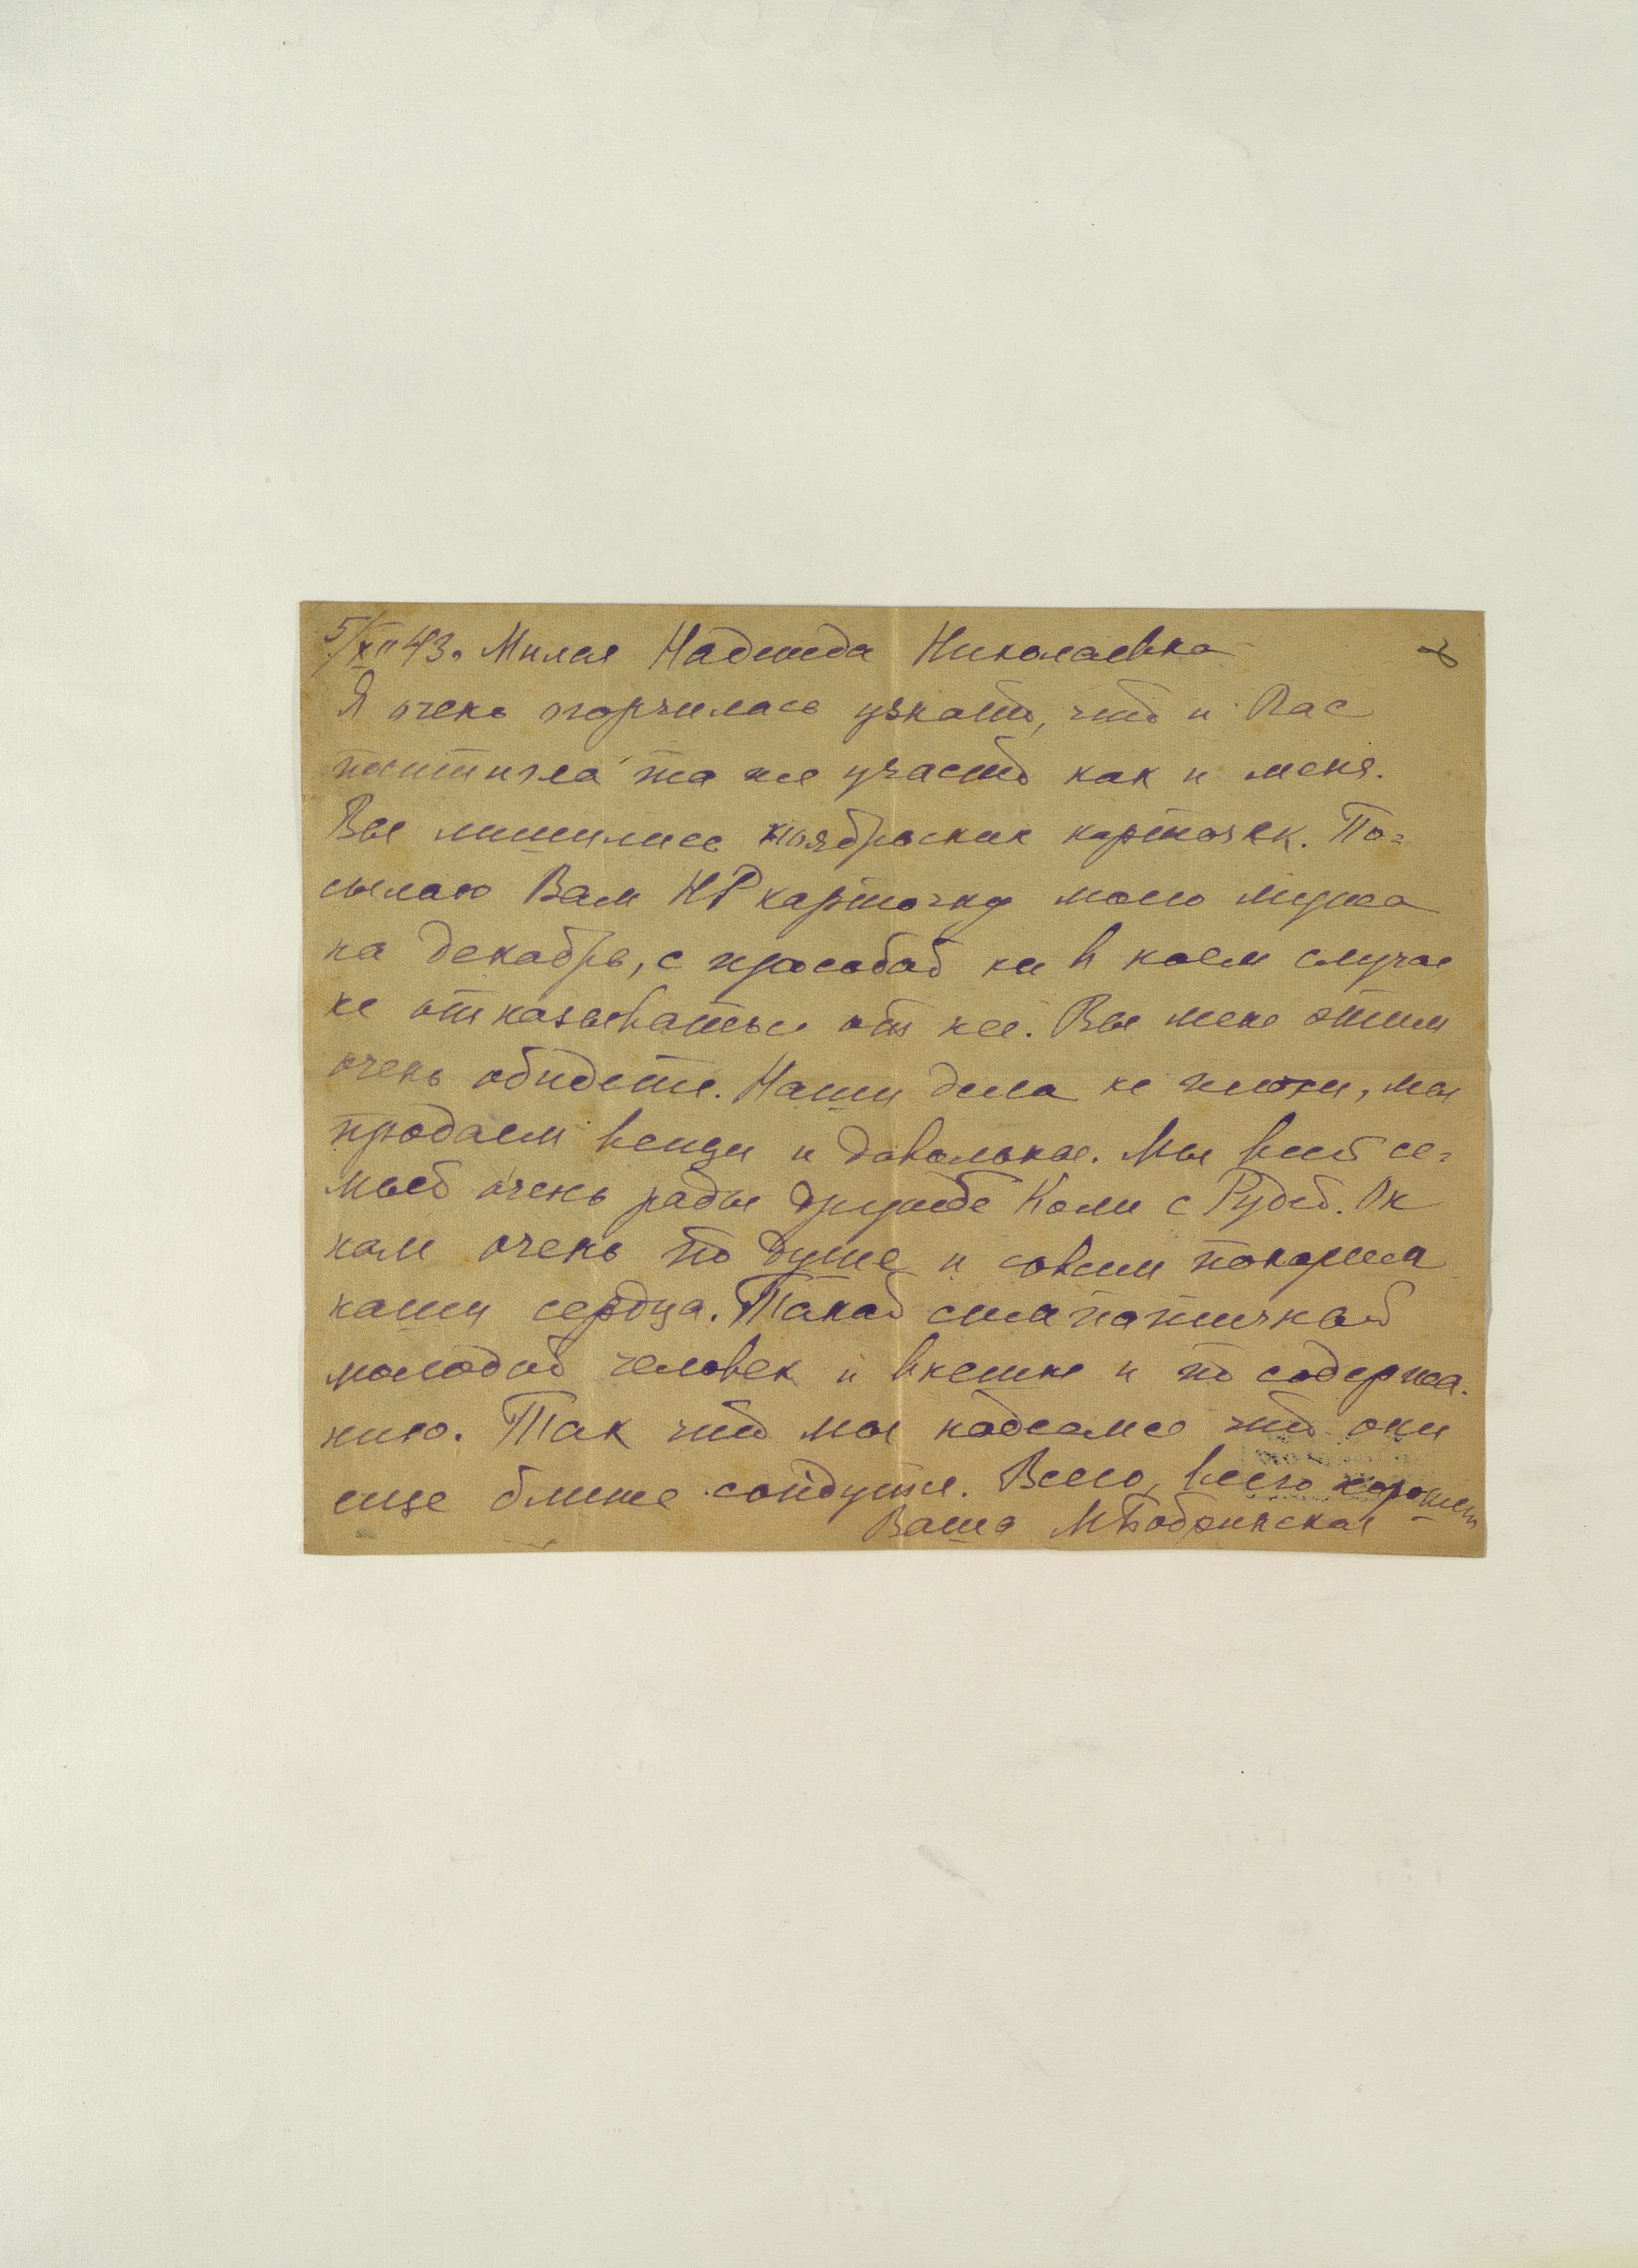 5/XII 43. Милая Надежда Николаевна
Я очень огорчилась узнать, что и Вас
постигла та же участь как и меня.
Вы лишились ноябрьских карточек. По=
сылаю Вам НР карточку моего мужа
на декабрь, с просьбой ни в коем случае
не отказываться от неё. Вы меня этим
очень обидете. Наши дела не плохи, мы
продаем вещи и довольны. Мы всей се=
мьей очень рады дружбе Коли с Рудей. Он
нам очень по душе и совсем покорил
наши сердца. Такой симпатичный
молодой человек и внешне и по содержа-
нию. Так что мы надеемся что они
еще ближе сойдутся. Всего, всего хорошего
Ваша МБобринская